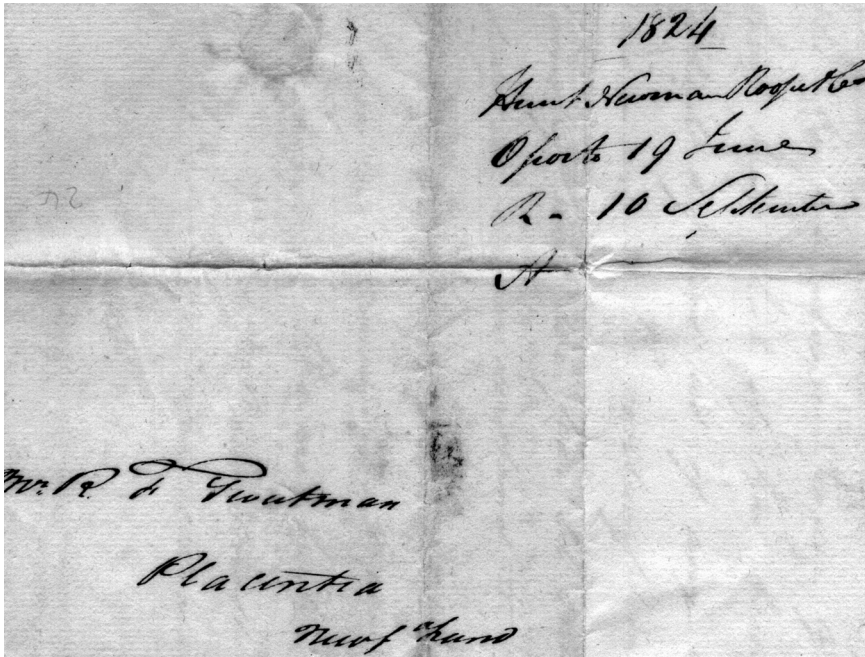 1824
Hunt Newman Roope & Co
Oporto 19 June
R - 10 September
A
Mr. R. F Sweetman
Placentia
Newf Land